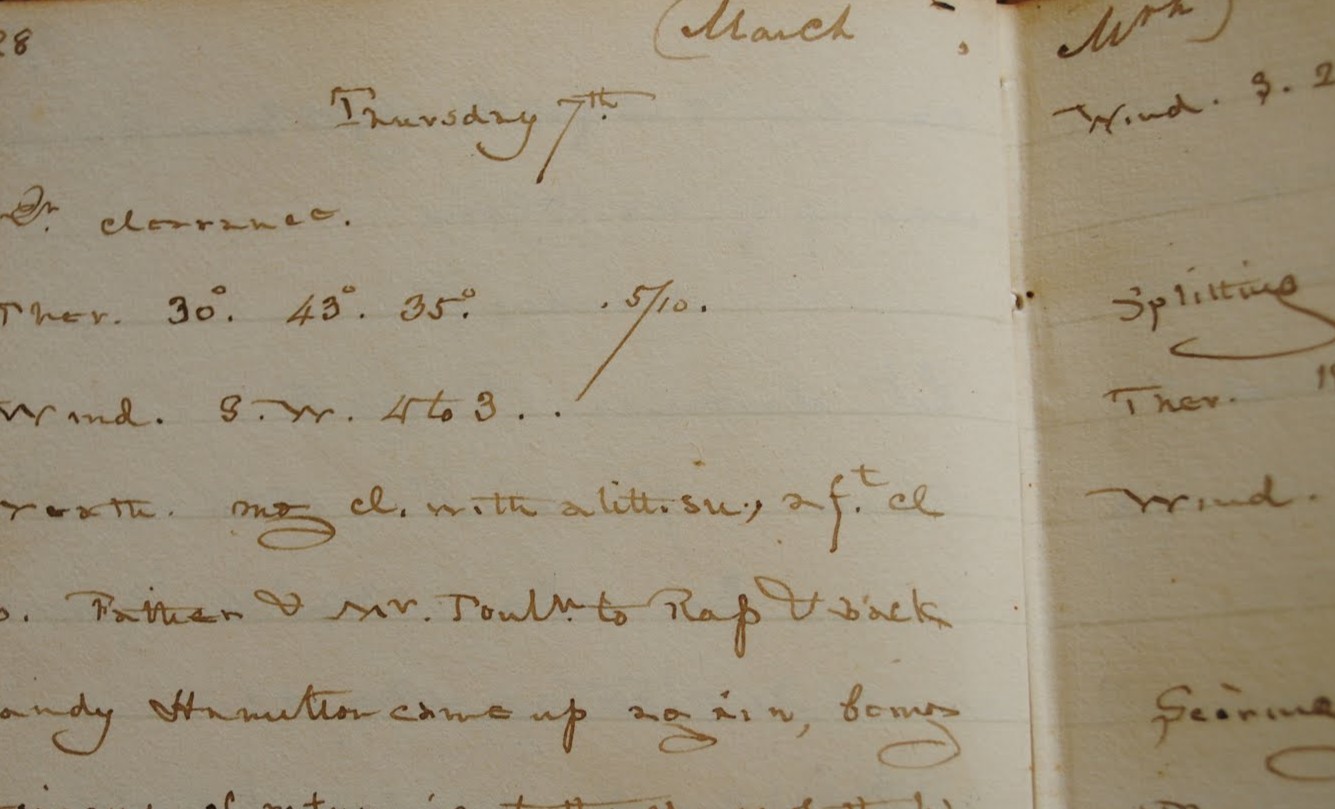 28
(March
Thursday 7th.
Dr. clearance.
Ther. 30°. 43°. 35°. . 5/10.
Wind. S.W. 4 to 3 . .
Weath. mg cl. with a litt. su., aft. cl
Father & Mr. Toulm. to Rap & back
andy Hamilton came up again, being
Wind. S. 2
Splitting
Ther.
Wind.